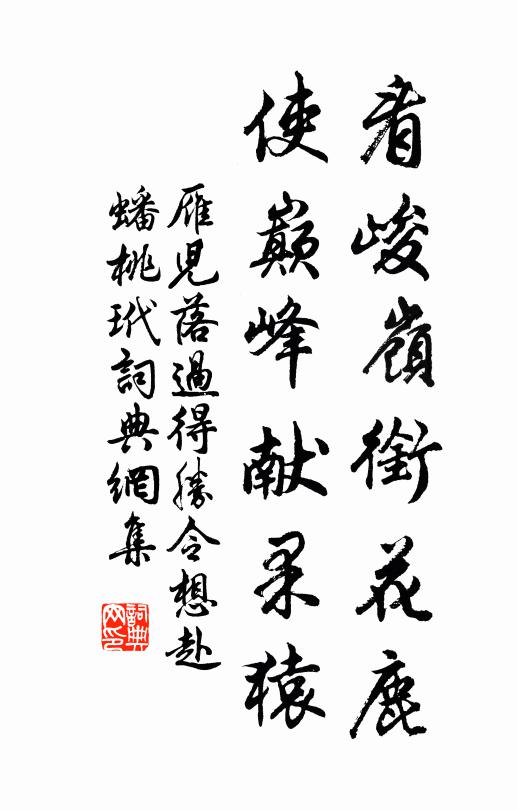 看峻嶺銜花鹿
使巔峰献果猿
雁児落過得勝令想赴
蟠桃玳詞典網集
詞典網印